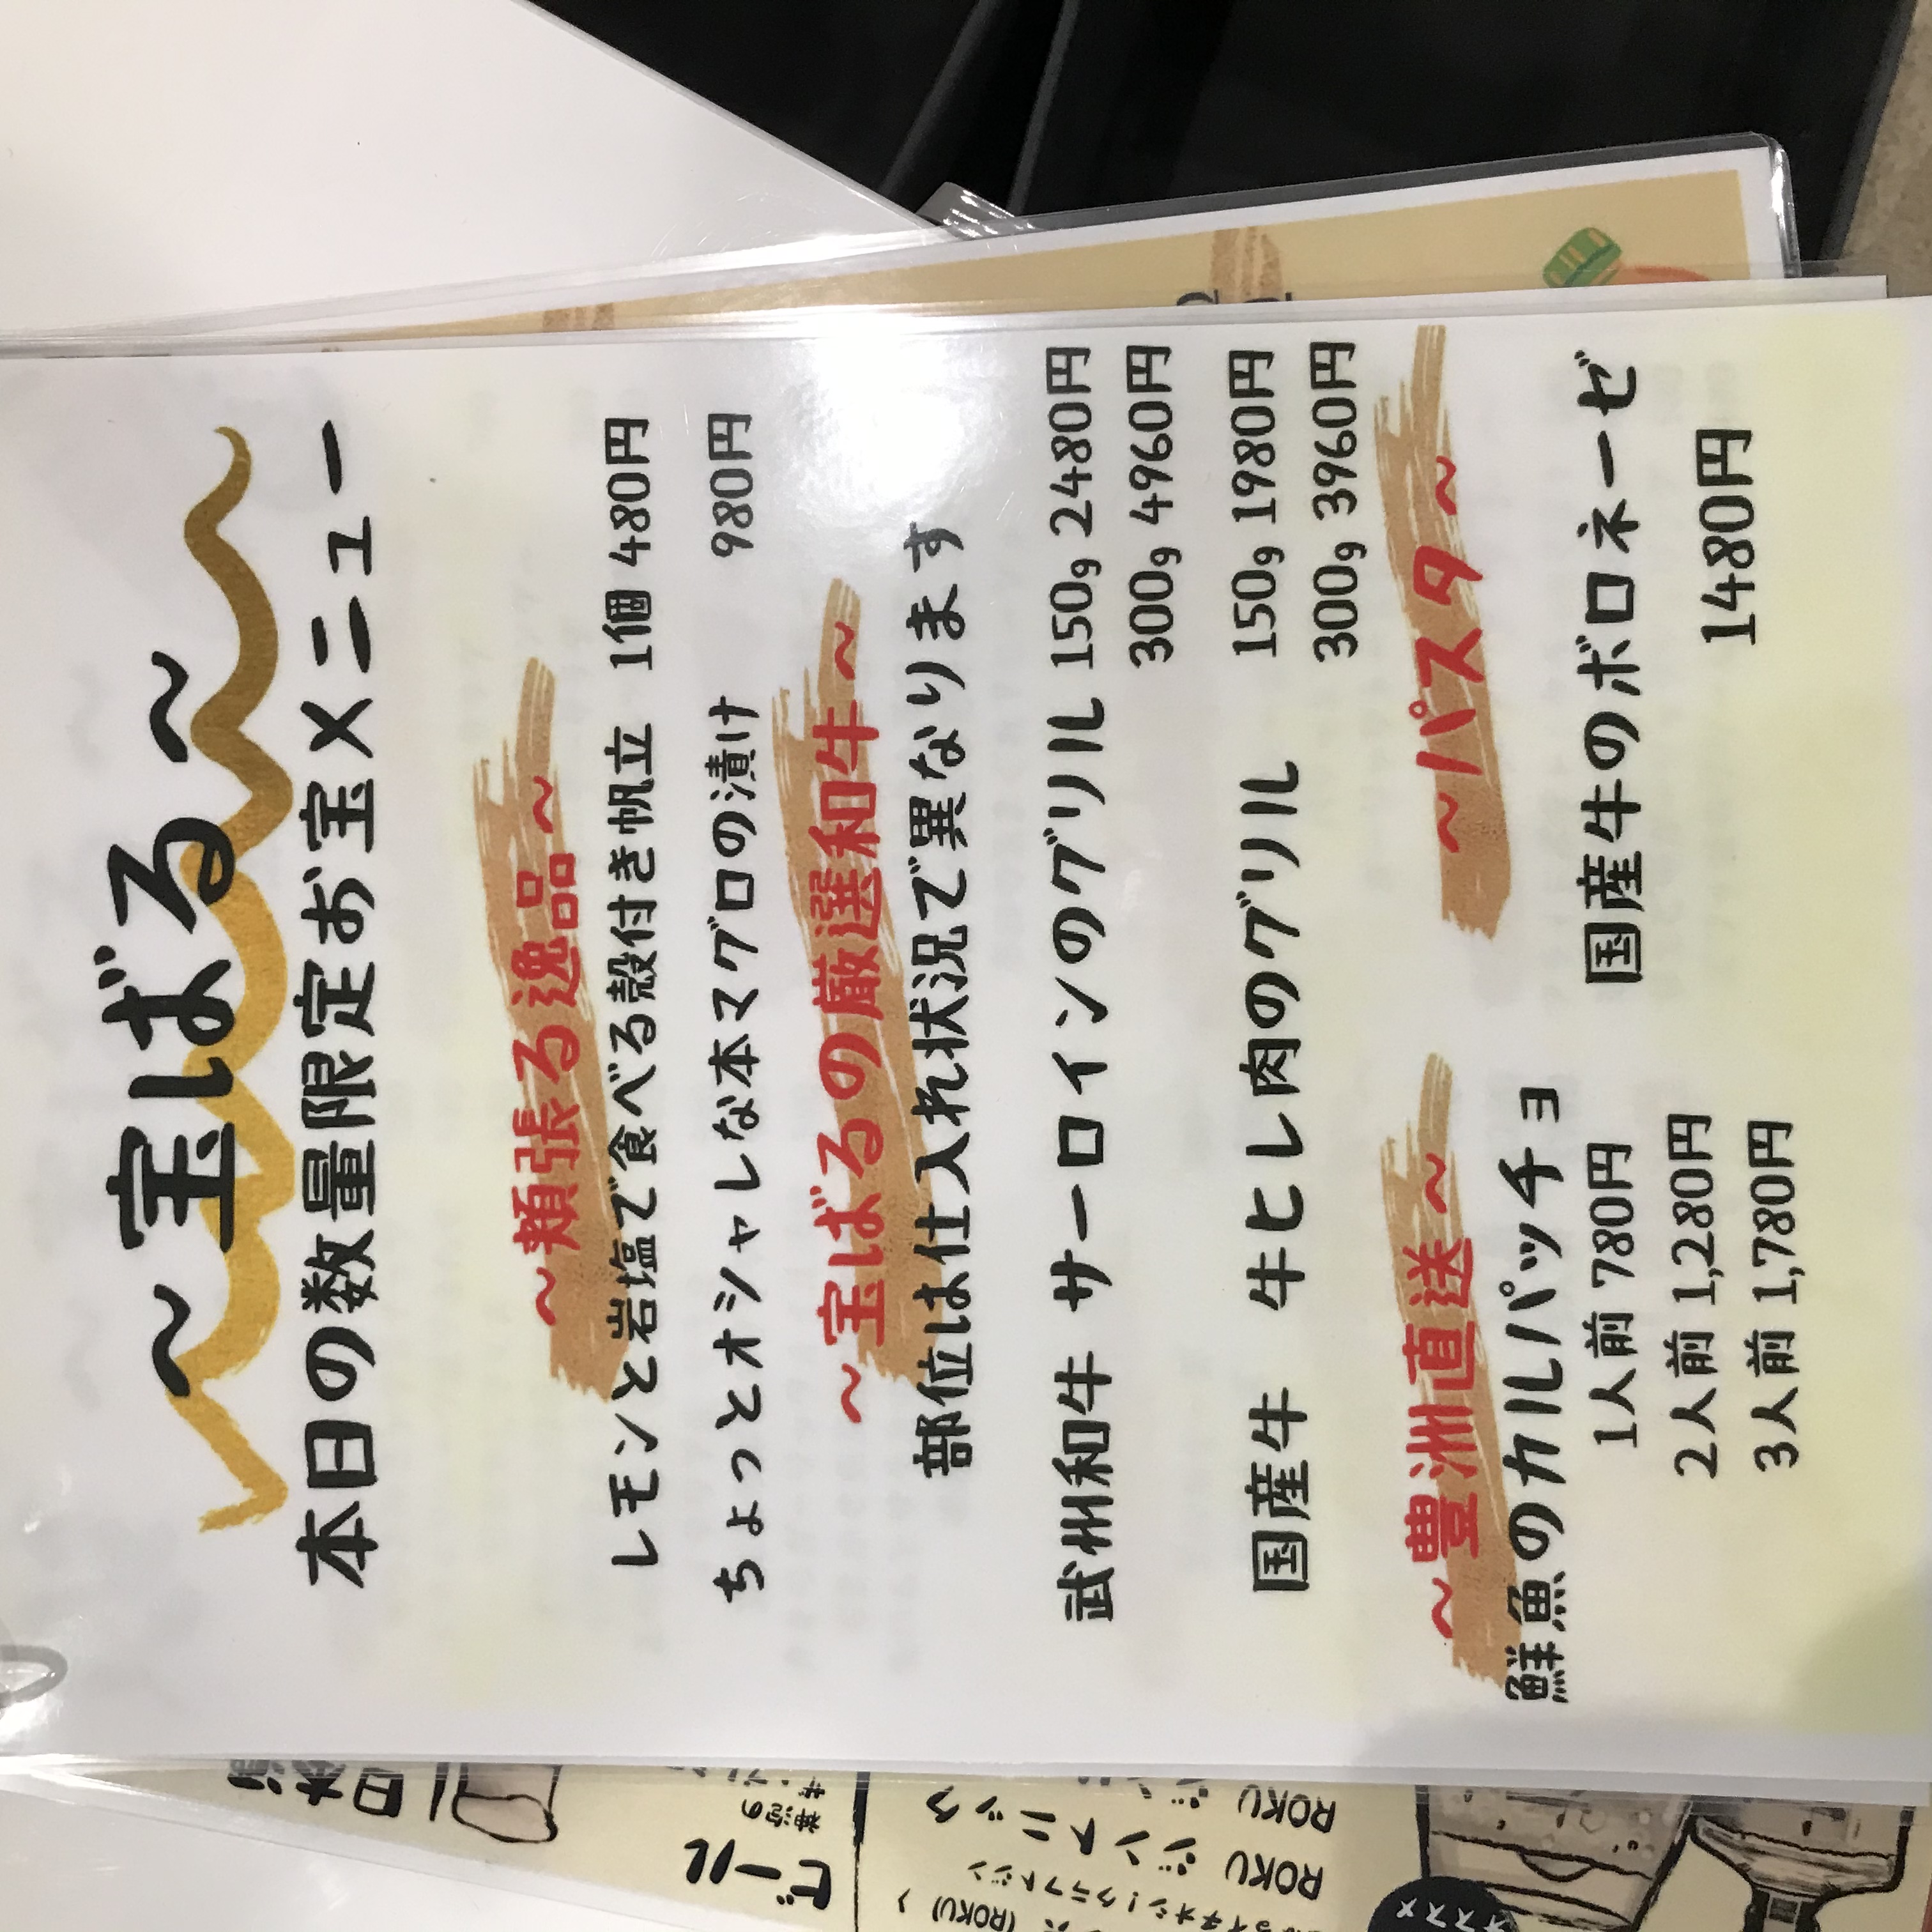 〜宝ばる〜
本日の数量限定お宝メニュー
〜頬張る逸品〜
レモンと岩塩で食べる殻付き帆立 1個 480円
ちょっとオシャレな本マグロの漬け 980円
〜宝ばるの厳選和牛〜
部位は仕入れ状況で異なります
武州和牛 サーロインのグリル 150g 2480円
300g 4960円
国産牛 牛ヒレ肉のグリル 150g 1980円
300g 3960円
〜豊洲直送〜
鮮魚のカルパッチョ
1人前 780円
2人前 1,280円
3人前 1,780円
〜パスタ〜
国産牛のボロネーゼ
1480円
日本酒
ビール
神泡の
ROKU ジントニック
ROKU
(ROKU)
イチオシ!クラフトジン
オススメ